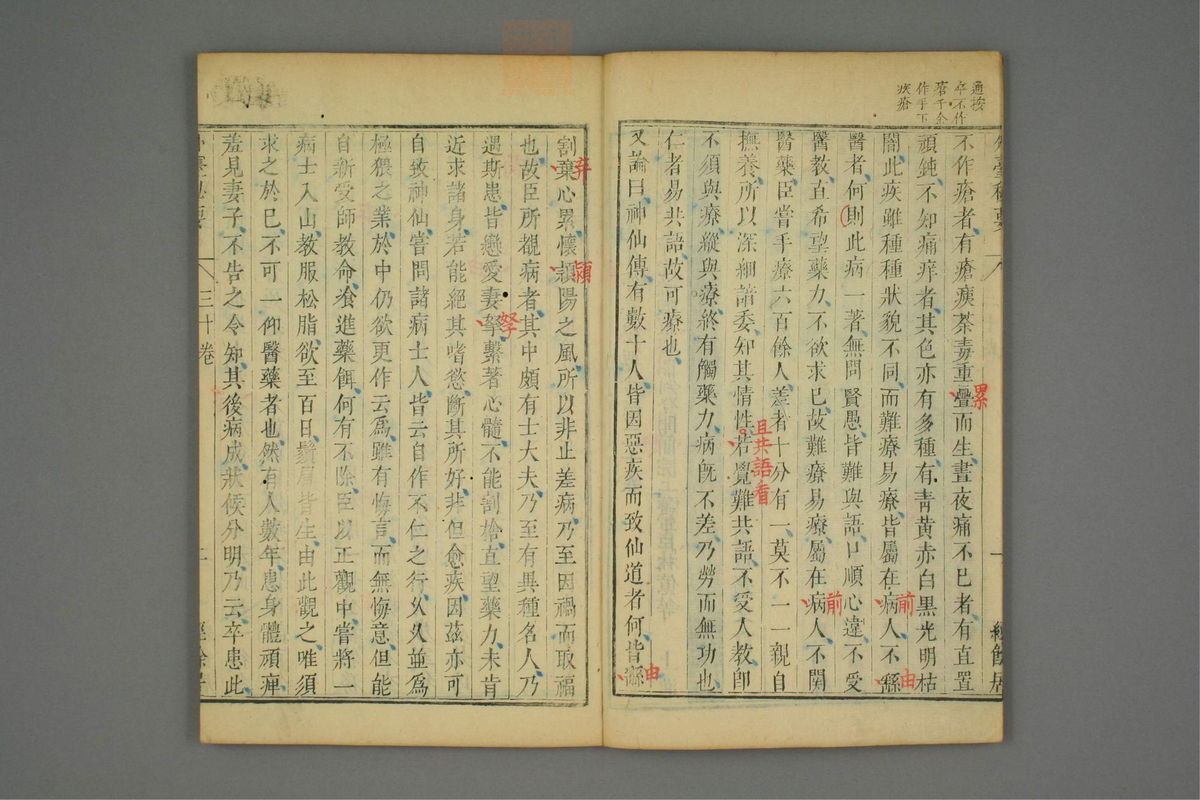 通按
卒不作
若千金
作手下
疾瘡
不作瘡者有瘡瘼荼毒重疊而生晝夜痛不已者有直置
頑鈍不知痛痒者其色亦有多種有青黃赤白黑光明枯
闇此疾雖種種狀貌不同而難療易療皆屬在病人不繇
醫者何則此病一著無問賢愚皆難與語口順心違不受
醫教直希望藥力不欲求已故難療易療屬在病人不關
醫藥臣嘗手療六百餘人差者十分有一莫不一一親自
撫養所以深細諳委知其情性若覺難共語不受人教卽
不須與療縱與療終有觸藥力病旣不差乃勞而無功也
仁者易共語故可療也
又論曰神仙傳有數十人皆因惡疾而致仙道者何皆繇
累
前
由
前
且共語看
由
割棄心累懷潁陽之風所以非止差病乃至因禍而取福
也故臣所覩病者其中頗有士大夫乃至有異種名人乃
遇斯患皆戀愛妻孥繫著心髓不能割捨直望藥力未肯
近求諸身若能絕其嗜慾斷其所好非但愈疾因茲亦可
自致神仙嘗問諸病士人皆云自作不仁之行久久並爲
極猥之業於中仍欲更作云爲雖有悔言而無悔意但能
自新受師教命飡進藥餌何有不除臣以正觀中嘗將一
病士入山教服松脂欲至百日鬚眉皆生由此觀之唯須
求之於已不可一仰醫藥者也然有人數年患身體頑痺
羞見妻子不告之令知其後病成狀候分明乃云卒患此
弃
潁
帑
外臺秘要
三十卷
二
經餘居
外臺秘要
經餘居